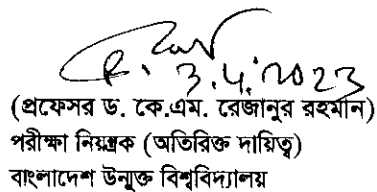 3.4.2023
(প্রফেসর ড. কে.এম. রেজানুর রহমান)
পরীক্ষা নিয়ন্ত্রক (অতিরিক্ত দায়িত্ব)
বাংলাদেশ উন্মুক্ত বিশ্ববিদ্যালয়